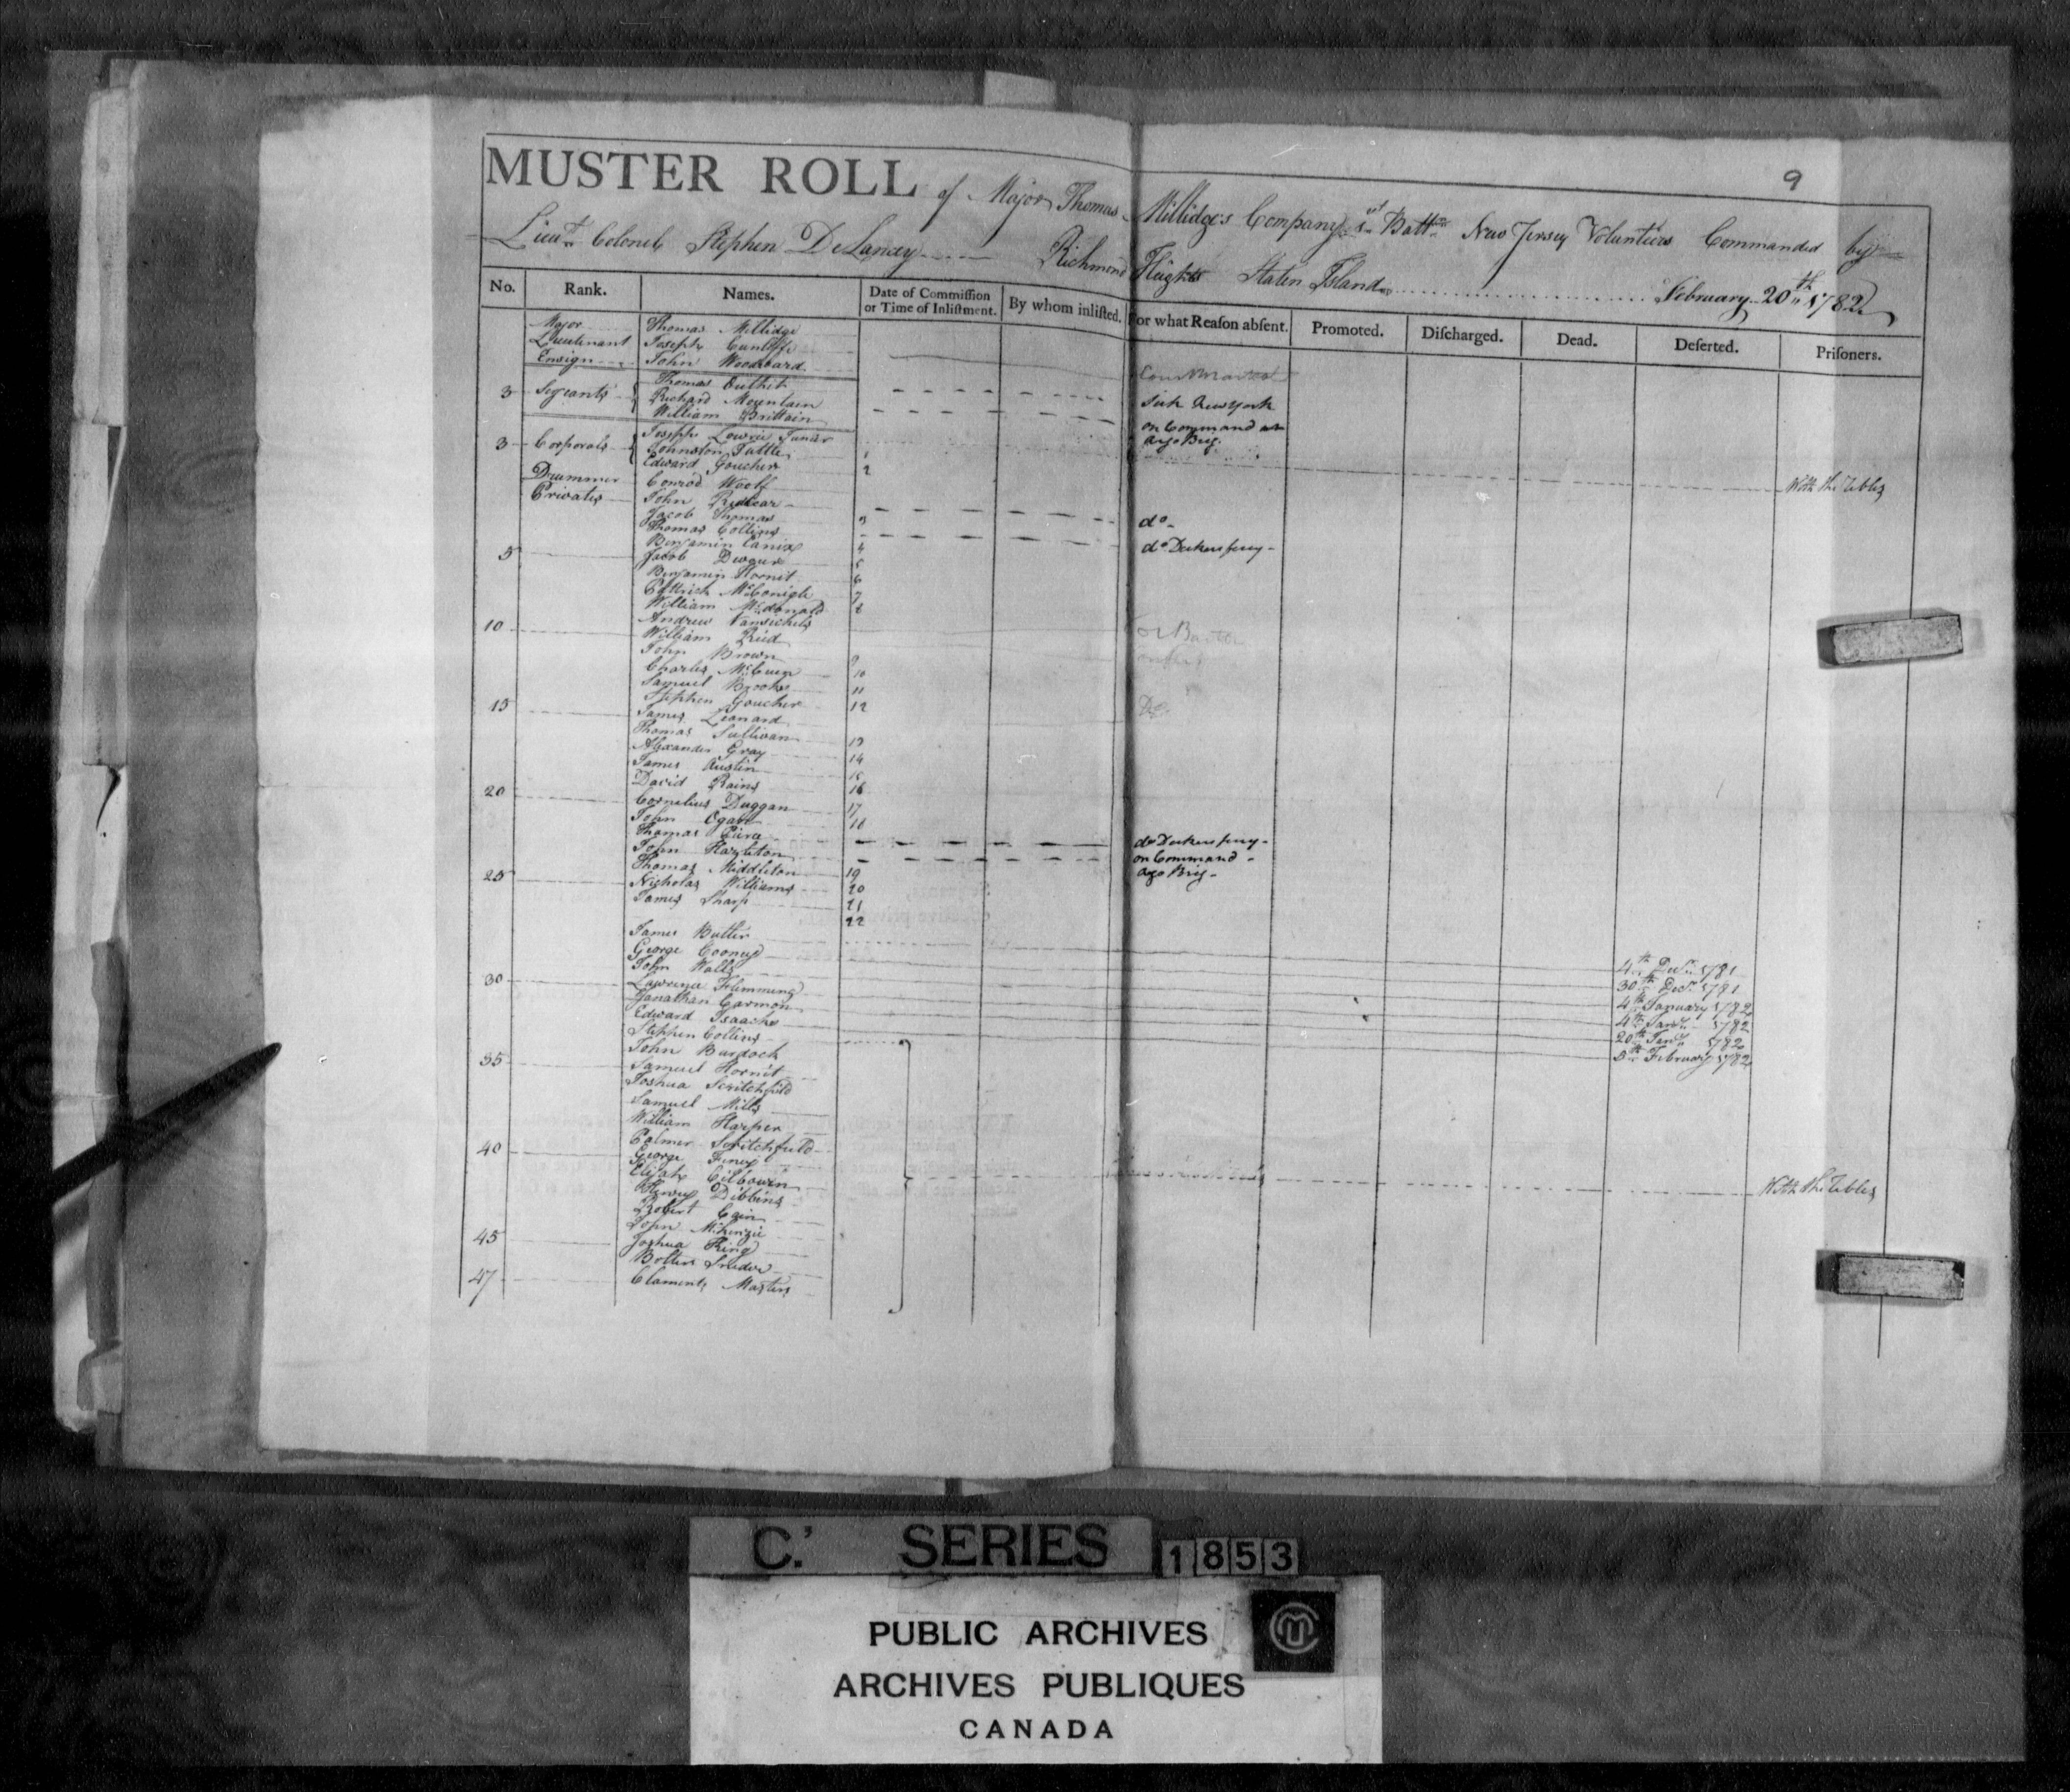 9
MUSTER ROLL of Major Thomas Millidge's Company 1st Battn New Jersey Volunteers Commanded by
Lieut Colonel Stephen DeLancy Richmond Heights Staten Island February 20th 1782
No. Rank. Names. Date of Commission or Time of Inlistment. By whom inlisted. For what Reason absent. Promoted. Discharged. Dead. Deserted. Prisoners.
Major Thomas Millidge
Lieutenant Joseph Cunliffe
Ensign John Woodward
Thomas Outhit
3 Sergeants Richard Mountain Sick New York
William Brittain on Command at
Argo Brig.
Joseph Lowrie Junior
3 Corporals Johnston Tuttle 1
Edward Goucher 2
Drummer Conrod Woolf With the Rebles
Privates John Rescar
Jacob Thomas do
Thomas Collins 3
Benjamin Canix 4 do Deckers ferry
5 Jacob 5
Benjamin Hornit 6
Pattrick McConigle 7
William McDonald 8
Andrew Vansickels
10 William Reid
John Brown 9
Charles McCuen 10
Samuel Brooks 11
Stephen Goucher 12
15 James Leonard Do
Thomas Sullivan 13
Alexander Gray 14
James Austin 15
David Rains 16
20 Cornelius Duggan 17
John Ogan 18
Thomas do Deckers ferry
John Hazleton on Command
Thomas Middleton 19 Argo Brig
25 Nicholas Williams 20
James Sharp 21
22
James Butler 4th Decr 1781
George Cooney 30th Decr 1781
John Walls 4th January 1782
30 Lawrence Flemming 4th Jany 1782
Jonathan Carmon 20th Jany 1782
Edward Isaacks 5th February 1782
Stephen Collins
John Burdock
35 Samuel Hornit
Joshua Scritchfield
Samuel Mills
William Harper
Palmer Scritchfield
40 George Finey
Elijah Cilbowin With the Rebles
Henry Dibbins
Robert Cain
John McKenzie
45 Joshua King
Bolten Snider
47 Claments Masters
C.' SERIES 1853
PUBLIC ARCHIVES
ARCHIVES PUBLIQUES
CANADA